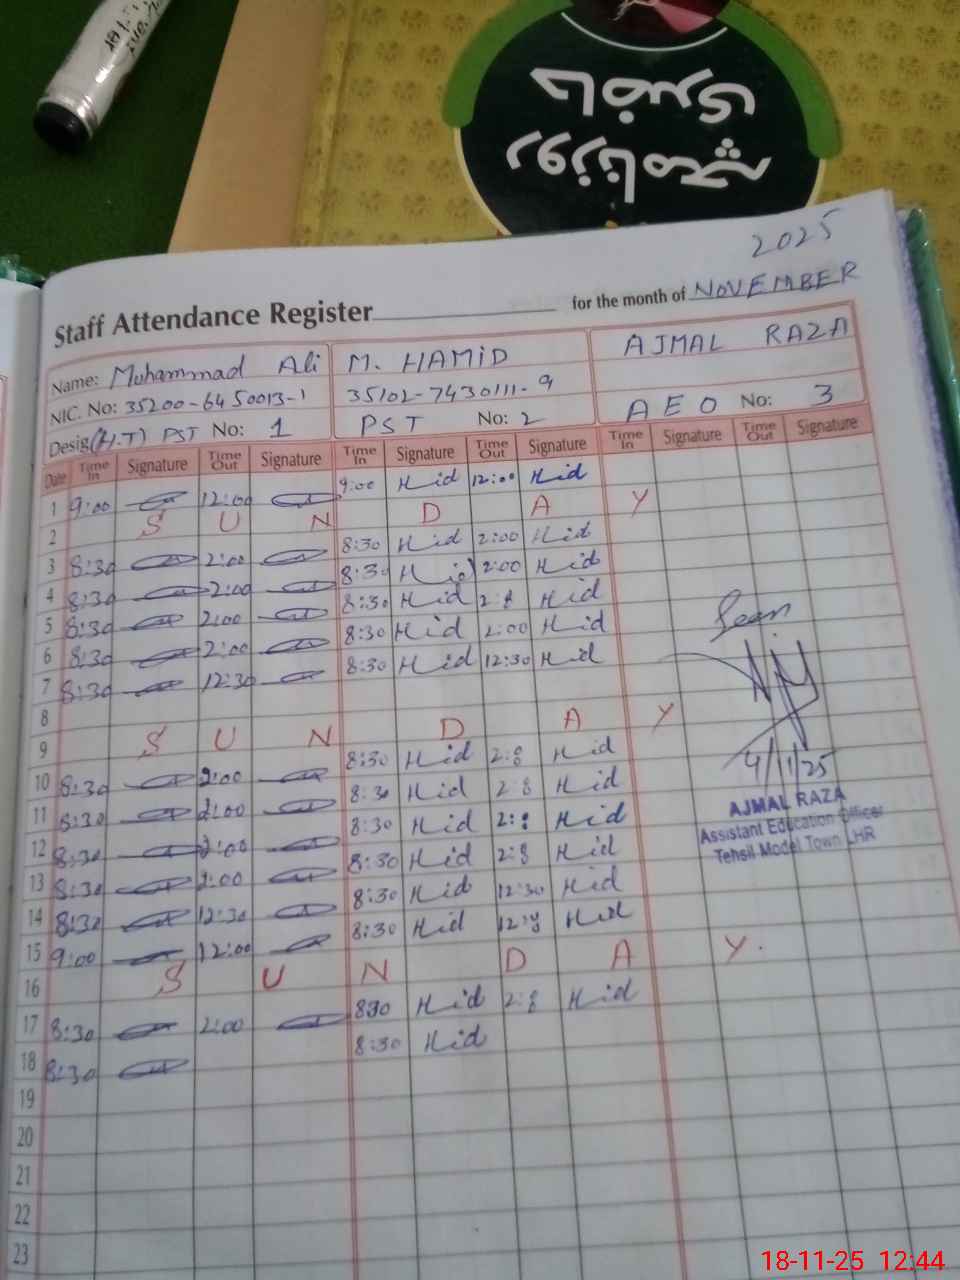 حاضری
روزنامچہ
2025
Staff Attendance Register for the month of NOVEMBER
Name: Muhammad Ali M. HAMID AJMAL RAZA
NIC. No: 35200-6450013-1 35102-7430111-9
Desig (H.T) PST No: 1 PST No: 2 AEO No: 3
Date Time In Signature Time Out Signature Time In Signature Time Out Signature Time In Signature Time Out Signature
1 9:00 12:00 9:00 Hid 12:00 Hid
2 S U N D A Y
3 8:30 2:00 8:30 Hid 2:00 Hid
4 8:30 2:00 8:30 Hid 2:00 Hid
5 8:30 2:00 8:30 Hid 2:8 Hid
6 8:30 2:00 8:30 Hid 2:00 Hid
7 8:30 12:30 8:30 Hid 12:30 Hid
8
9 S U N D A Y
10 8:30 2:00 8:30 Hid 2:8 Hid
11 8:30 2:00 8:30 Hid 2:8 Hid
12 8:30 2:00 8:30 Hid 2:8 Hid
13 8:30 2:00 8:30 Hid 2:8 Hid
14 8:30 12:30 8:30 Hid 12:30 Hid
15 9:00 12:00 8:30 Hid Hid
16 S U N D A Y.
17 8:30 2:00 830 Hid 2:8 Hid
18 8:30 8:30 Hid
19
20
21
22
23
Seen
4/11/25
AJMAL RAZA
Assistant Education Officer
Tehsil Model Town LHR
18-11-25 12:44